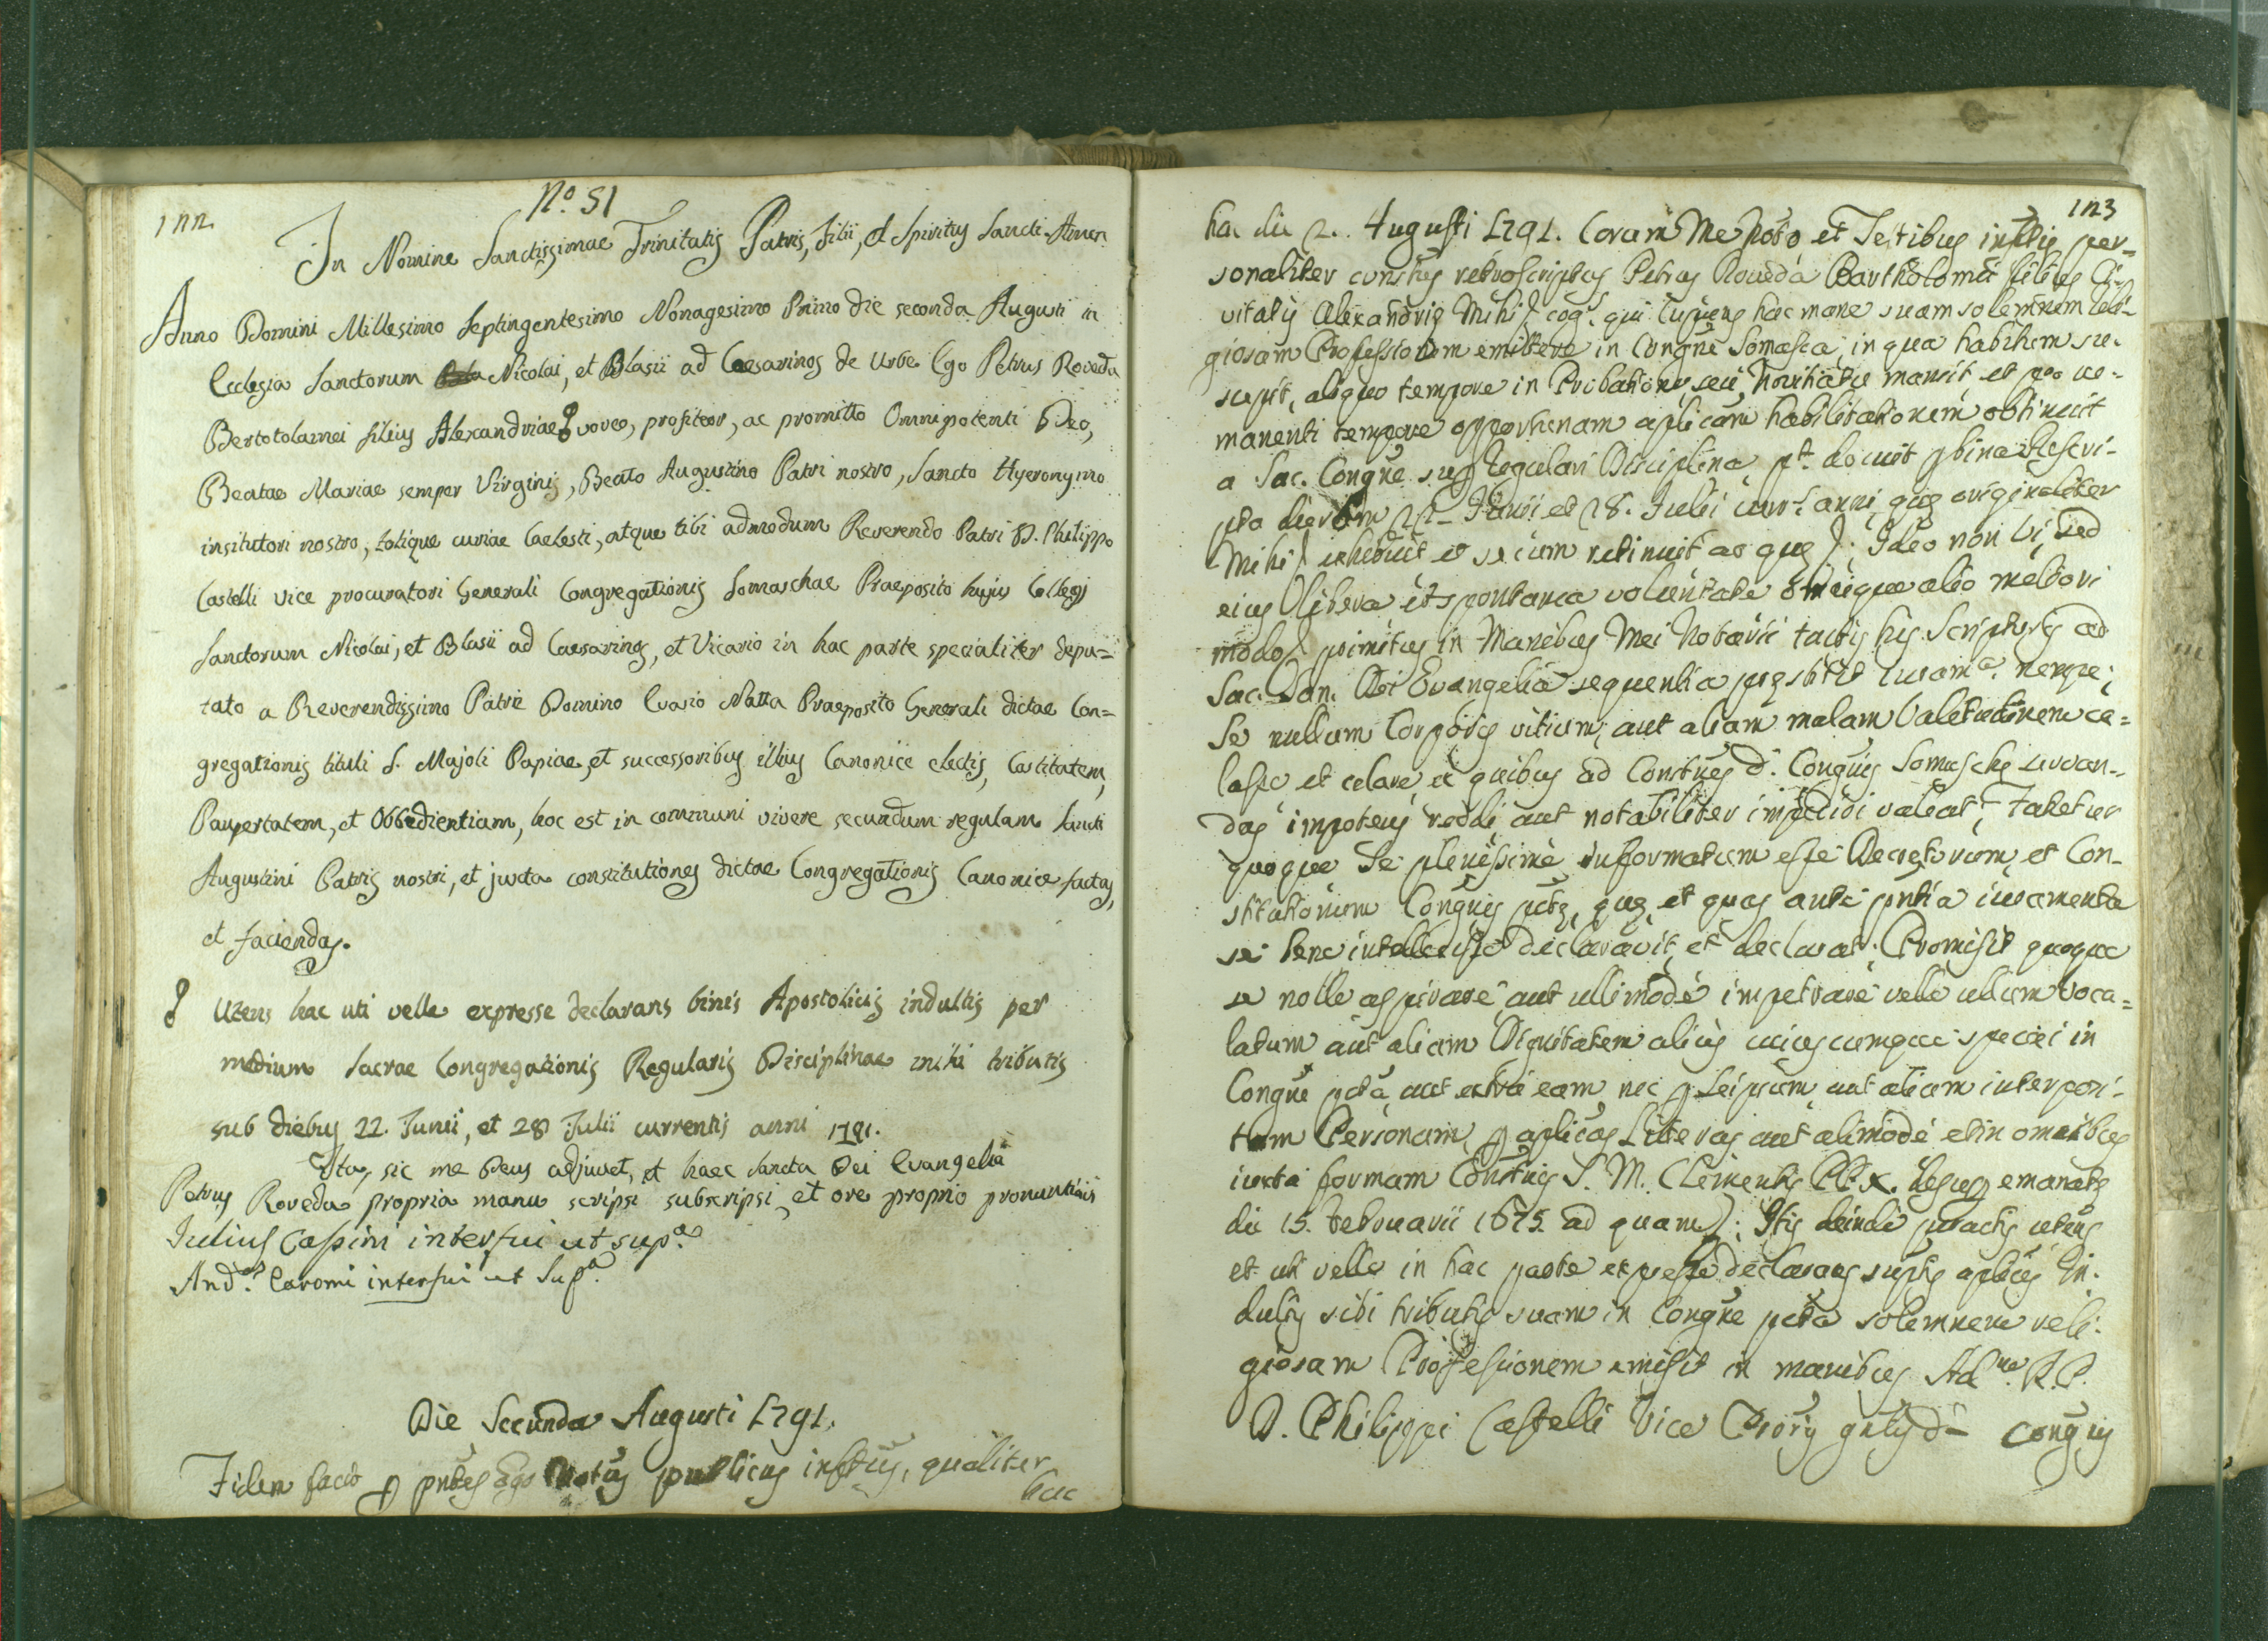 122
N.º 51
In Nomine Sanctissimae Trinitatis Patris, Filii, et Spiritus Sancti. Amen
Anno Domini Millesimo Septingentesimo Nonagesimo Primo die seconda Augusti in
Ecclesia Sanctorum Nicolai, et Blasii ad Caesarinos de Urbe Ego Petrus Roveda
Bertotolamei filius Alexandriae voveo, profiteor, ac promitto Omnipotenti Deo,
Beatae Mariae semper Virginis, Beato Augustino Patri nostro, Sancto Hyeronymo
institutori nostro, totique curiae Caelesti, atque tibi admodum Reverendo Patri D. Philippo
Castelli vice procuratori Generali Congregationis Somaschae Praeposito hujus Collegj
Sanctorum Nicolai, et Blasii ad Caesarinos, et Vicario in hac parte specialiter depu=
tato a Reverendissimo Patre Domino Evasio Natta Praeposito Generali dictae Con=
gregationis tituli S. Majoli Papiae, et successoribus illius Canonice electis, Castitatem,
Paupertatem, et Obbedientiam, hoc est in communi vivere secundum regulam Sancti
Augustini Patris nostri, et juxta constitutiones dictae Congregationis Canonice factas,
et faciendas.
Utens hac uti velle expresse declarans binis Apostolicis indultis per
medium Sacrae Congregationis Regularis Disciplinae mihi tributis
sub diebus 22. Junii, et 28 Julii currentis anni 1791.
Ita, sic me Deus adjuvet, et haec Sancta Dei Evangelia
Petrus Roveda propria manu scripsi subscripsi, et ore proprio pronuntiavi
Iulius Cassini interfui ut sup.ª
And.ª Caromi interfui ut Sup.ª
Die Secunda Augusti 1791.
Fidem facio p pntes Ego Notus publicus infrus, qualiter
hac
123
hac die 2. Augusti 1791. Coram Me Noto et Testibus inftis per=
sonaliter constus retroscriptus Petrus Roveda Bartholomei filius Ci=
vitatis Alexandrie Mihi cog.s qui cupiens hac mane suam solemnem Reli=
giosam Professionem emittere in Congne Somasca, in qua habitum su=
scepit, aliquo tempore in Probatione, seu Novitiatu mansit et pro re=
manenti tempore opportunam aplicam habilitationem obtinuit
a Sac. Congne sup Regulari Disciplina pt docuit p bina Rescri-
pta dierum 22 Junii et 28. Julii curr.s anni, que originaliter
Mihi exhibuit et secum retinuit ac que; Ideo non Vi, sed
eius libera et spontanea voluntate omnique alio meliori
modo primitus in Manibus Mei Notarii tactis his Scripturis ad
Sac. San. Dei Evangelia sequentia prestitit Iuram.ª nempe;
Se nullum Corporis vitium, aut aliam malam Valetudinem ce=
lasse et celare, ex quibus ad Constnes d. Congnis Somasche servan-
das impotens reddi aut notabiliter impediri valeat; Fatetur
quoque Se plenissime informatum esse Decretorum, et Con-
stitutionum Congnis pcte, que et quas ante pntia iuramenta
se bene intellexisse declaravit, et declarat; Promisit quoque
se nolle aspirare aut ullimode impetrare velle ullum Voca=
latum aut aliam Dignitatem alicuius cumque speciei in
Congne pcta aut extra eam, nec p Seipsum aut aliam interposi-
tam Personam, p aplicas Litteras aut alimode et in omnibus
iuxta formam Constnis S. M. Clementis PP. X. desup emanate
die 15. Februarii 1675. ad quam; Stis deinde peractis utens
et uti velle in hac parte expresse declarans suptis aplicis In-
dultis sibi tributis suam in Congne pcta solemnem reli-
giosam Professionem emisit in manibus Ad.m R. P.
D. Philippi Castelli Vice Proris gnlis d. Congnis